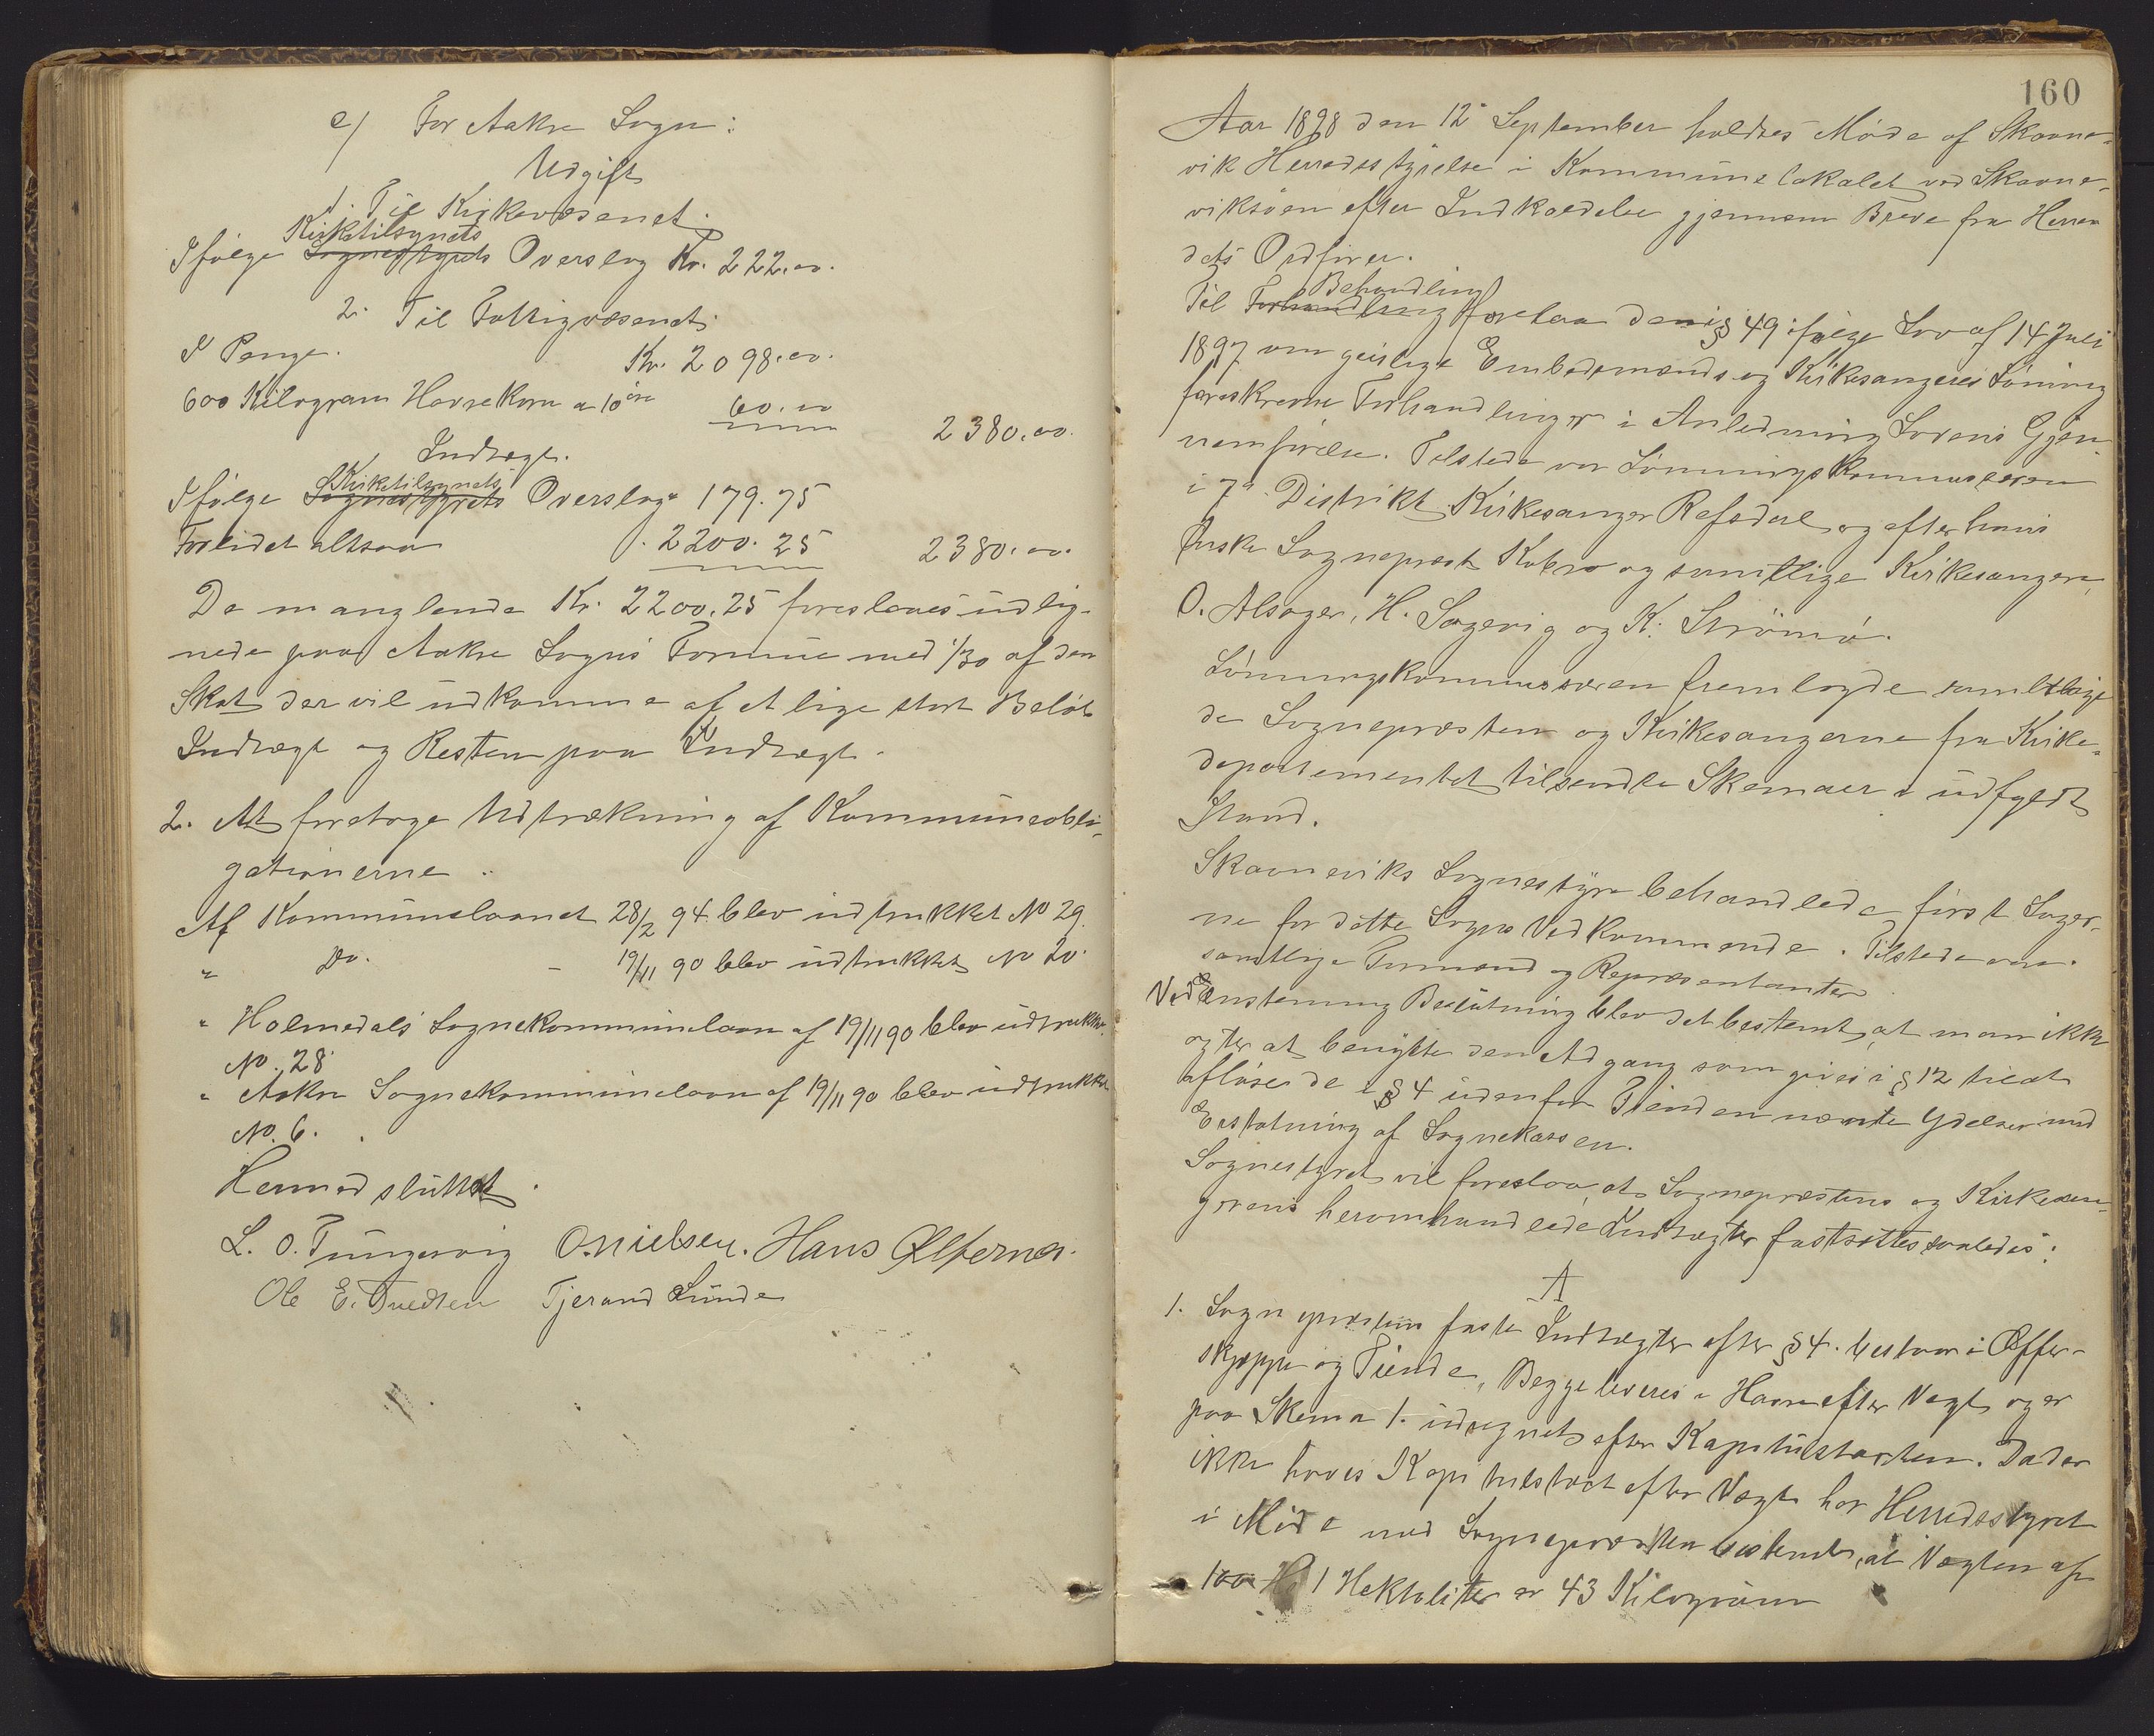 c/ For Aakre Sogn:
Udgift
1. Til Kirkevæsenet.
Kirketilsynets
Ifølge Sognestyrets Overslag Kr. 222.00.
2. Til Fattigvæsenet.
I Penge. Kr. 2098.00.
600 Kilogram Havrekorn a 10 øre 60.00 2380.00.
Indtægt.
Kirketilsynets
Ifølge Sognestyrets Overslag 179.75
Forlidet altsaa 2200.25 2380.00.
De manglende Kr. 2200.25 foreslaaes udlig-
nede paa Aakre Sogns Formue med 1/30 af den
Skat der vil udkomme af et lige stort Beløb
Indtægt og Resten paa Indtægt.
2. At foretage Udtrækning af Kommuneobli-
gationerne.
Af Kommunelaanet 28/2 94 blev udtrukket No 29.
" Do. - 19/11 90 blev udtrukket No 20.
" Holmedals Sognekommunelaan af 19/11 90 blev udtrukket
No. 28
" Aakre Sognekommunelaan af 19/11 90 blev udtrukket
No. 6.
Hermed sluttet.
L. O. Tungesvig O. Nielsen. Hans Ølfernes.
Ole E. Tvedten Tjerand Lunde
160
Aar 1898 den 12 September holdtes Møde af Skaane-
vik Herredsstyrelse i Kommunelokalet ved Skaane-
viksøen efter Indkaldelse gjennem Breve fra Herre
dets Ordfører.
Behandling
Til Forhandling forelaa den i § 49 ifølge Lov af 14 Juli
1897 om geislige Embedsmænds og Kirkesangeres Lønning
foreskrevne Forhandlinger i Anledning Lovens Gjen-
nemførelse. Tilstede var Lønningskommissæren
i 7de Distrikt Kirkesanger Refsdal og efter hans
Ønske Sogneprest Kobro og samtlige Kirkesangere,
O. Alsager, H. Sagevig og K. Strømø.
Lønningskommissæren fremlagde samtlige
de Sognepresten og Kirkesangerne fra Kirke-
departementet tilsendte Skemaer i udfyldt
Stand.
Skaaneviks Sognestyre behandlede først Sager-
ne for dette Sogns Vedkommende. Tilstede var
samtlige Formænd og Repræsentanter
Ved Enstemmig Beslutning blev det bestemt, at man ikke
agter at benytte den Adgang som gives i § 12 til at
afløse de i § 4 udenfor Tienden nævnte Ydelser med
Erstatning af Sognekassen.
Sognestyret vil foreslaa, at Sogneprestens og Kirkesan-
gerens heromhandlede Indtægter fastsættes saaledes:
A
1. Sogneprestens faste Indtægter efter § 4. bestaar i Offer-
skjeppe og Tiende. Begge leveres i Havre efter Vægt og er
paa Skema 1. udregnet efter Kapitelstaxten. Da der
ikke haves Kapitelstaxt efter Vægt har Herredsstyret
i Møde med Sognepresten bestemt, at Vægten af
100 H 1 Hektoliter er 43 Kilogram